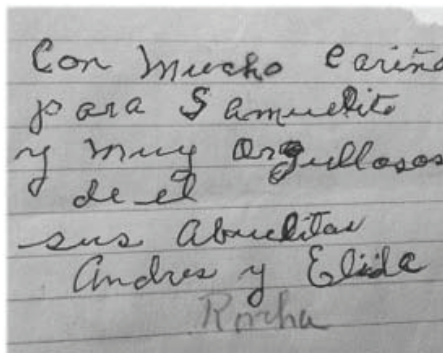 Con Mucho Cariño
para Samuelito
y muy orgullosos
de el
sus Abuelitos
Andres y Elida
Rocha